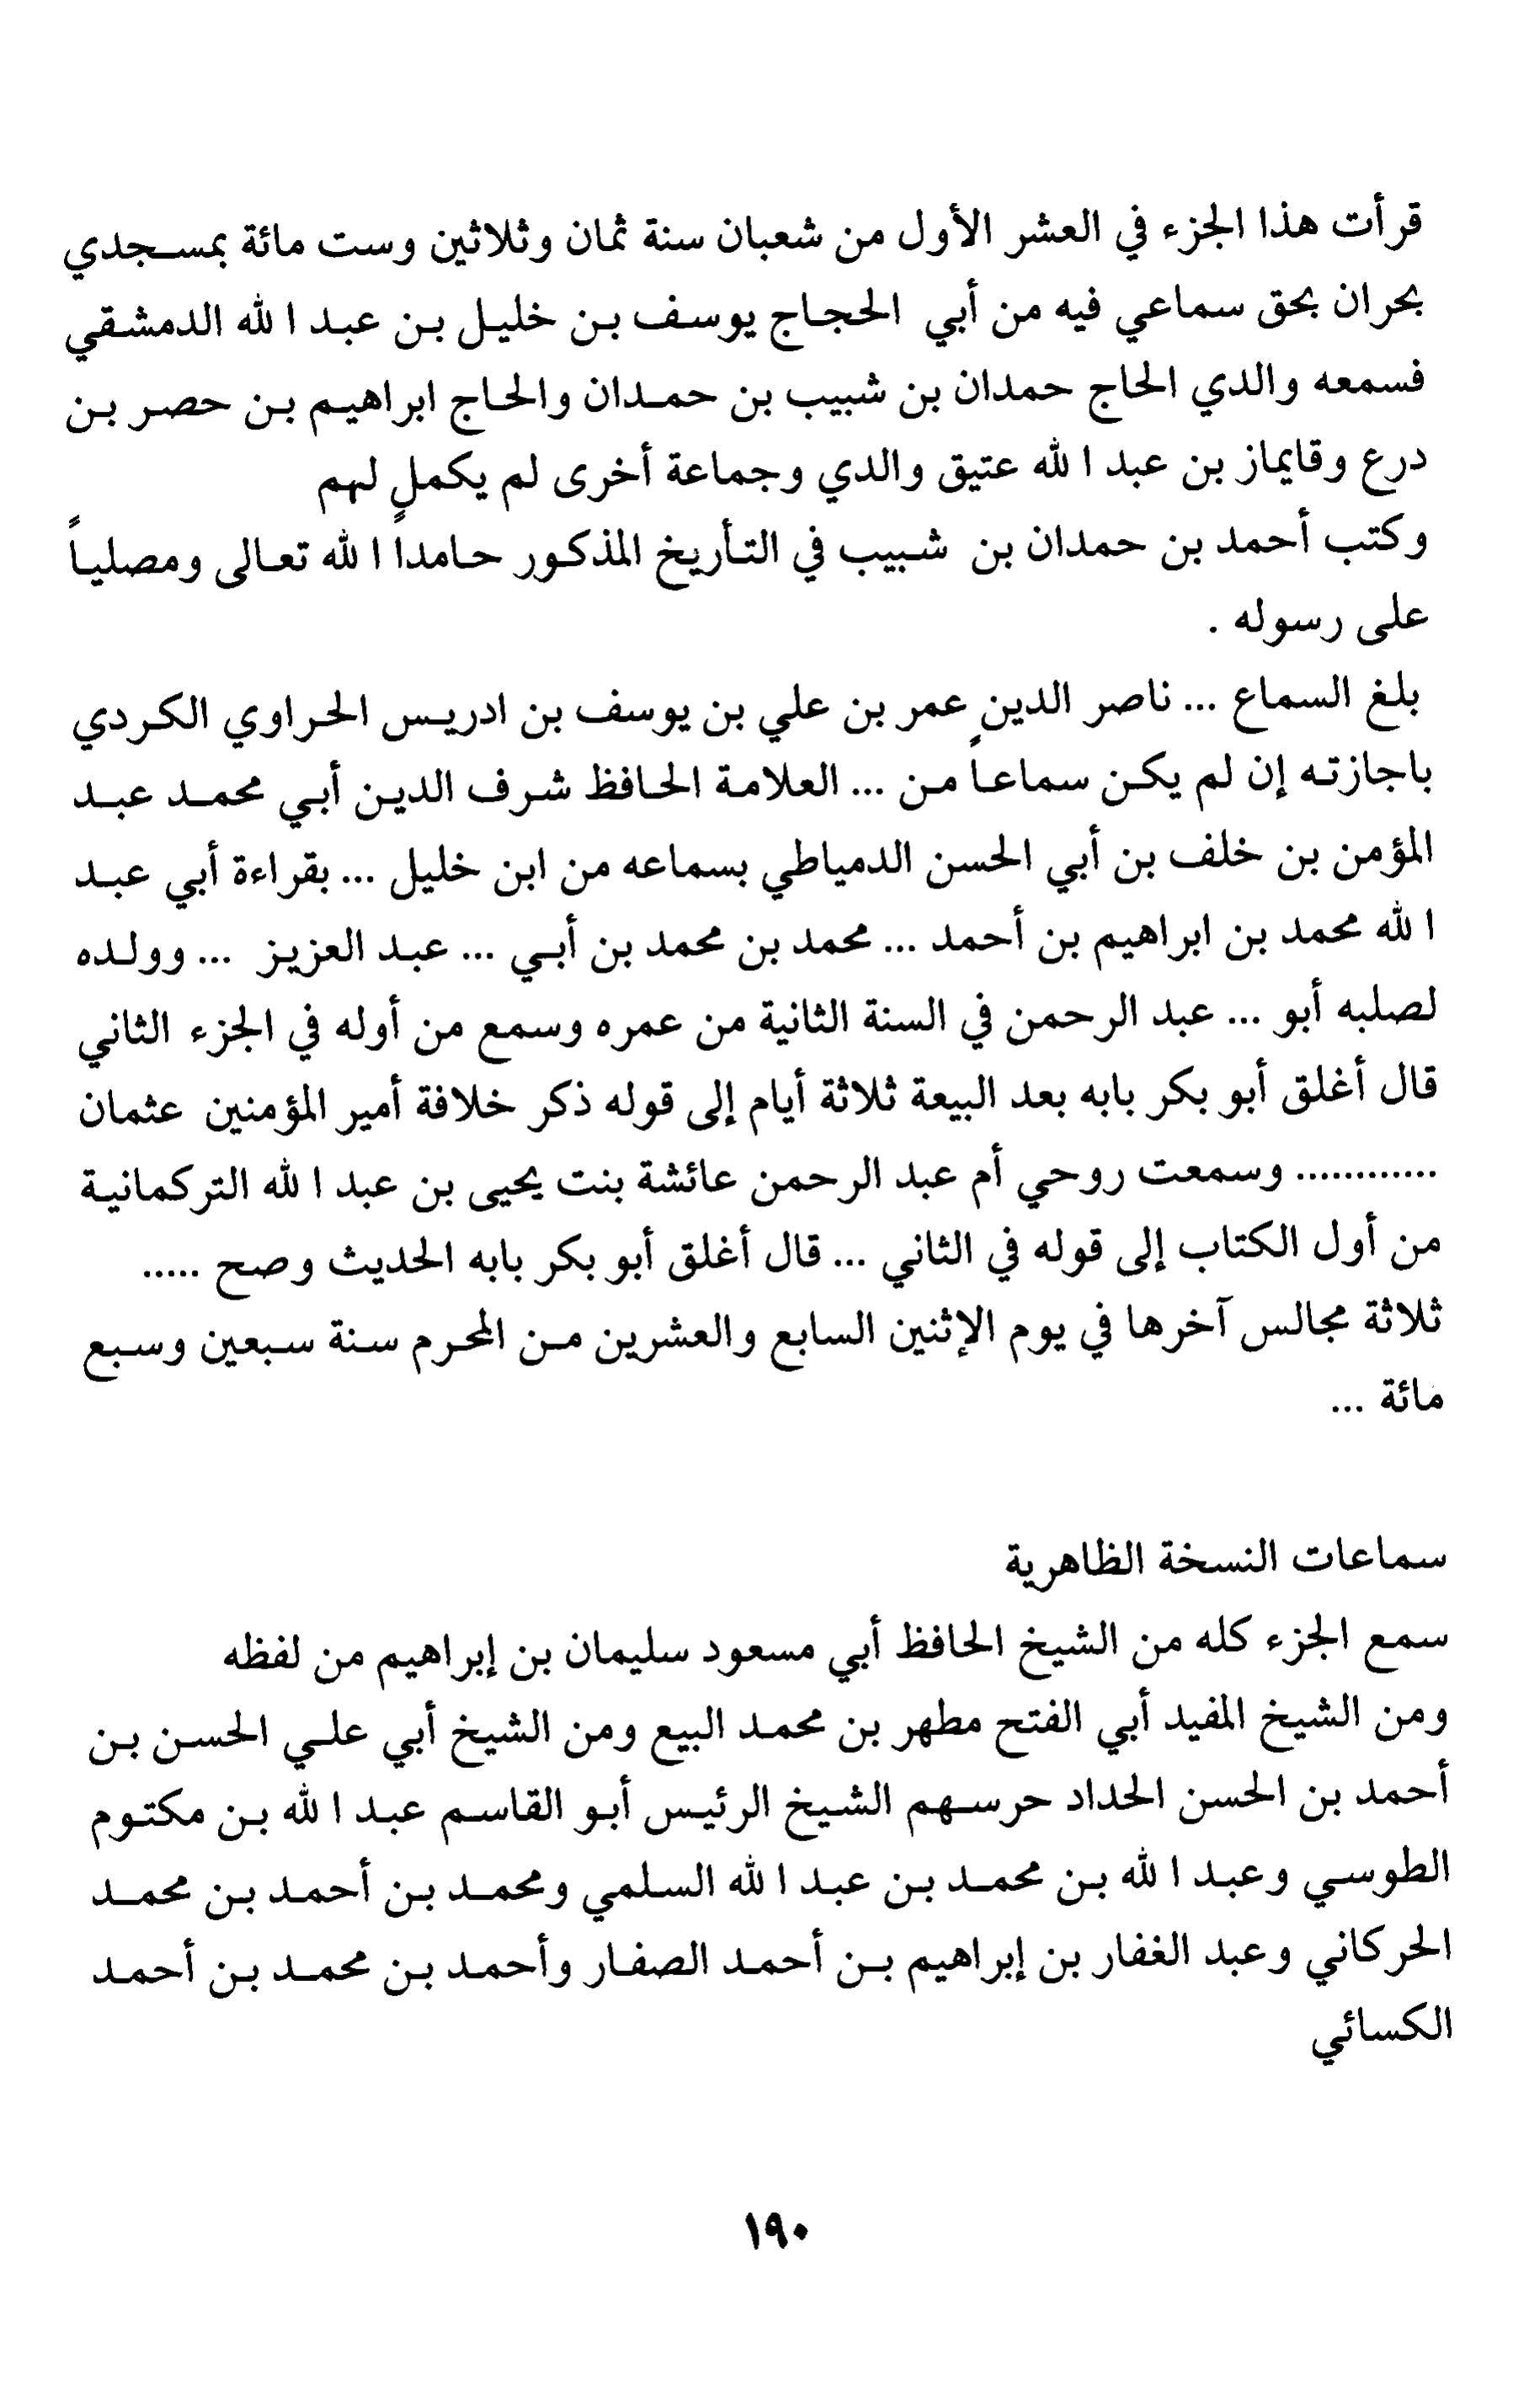 قرأت هذا الجزء في العشر الأول من شعبان سنة ثمان وثلاثين وست مائة بمسجدي
بحران بحق سماعي فيه من أبي الحجاج يوسف بن خليل بن عبد الله الدمشقي
فسمعه والدي الحاج حمدان بن شبيب بن حمدان والحاج ابراهيم بن حصر بن
درع وقايماز بن عبد الله عتيق والدي وجماعة أخرى لم يكمل لهم
وكتب أحمد بن حمدان بن شبيب في التأريخ المذكور حامداً الله تعالى ومصلياً
على رسوله .
بلغ السماع ... ناصر الدين عمر بن علي بن يوسف بن ادريس الحراوي الكردي
باجازته إن لم يكن سماعاً من ... العلامة الحافظ شرف الدين أبي محمد عبد
المؤمن بن خلف بن أبي الحسن الدمياطي بسماعه من ابن خليل ... بقراءة أبي عبد
الله محمد بن ابراهيم بن أحمد ... محمد بن محمد بن أبي ... عبد العزيز ... وولده
لصلبه أبو ... عبد الرحمن في السنة الثانية من عمره وسمع من أوله في الجزء الثاني
قال أغلق أبو بكر بابه بعد البيعة ثلاثة أيام إلى قوله ذكر خلافة أمير المؤمنين عثمان
............ وسمعت روحي أم عبد الرحمن عائشة بنت يحيى بن عبد الله التركمانية
من أول الكتاب إلى قوله في الثاني ... قال أغلق أبو بكر بابه الحديث وصح .....
ثلاثة مجالس آخرها في يوم الإثنين السابع والعشرين من المحرم سنة سبعين وسبع
مائة ...
سماعات النسخة الظاهرية
سمع الجزء كله من الشيخ الحافظ أبي مسعود سليمان بن إبراهيم من لفظه
ومن الشيخ المفيد أبي الفتح مطهر بن محمد البيع ومن الشيخ أبي علي الحسن بن
أحمد بن الحسن الحداد حرسهم الشيخ الرئيس أبو القاسم عبد الله بن مكتوم
الطوسي وعبد الله بن محمد بن عبد الله السلمي ومحمد بن أحمد بن محمد
الحركاني وعبد الغفار بن إبراهيم بن أحمد الصفار وأحمد بن محمد بن أحمد
الكسائي
١٩٠